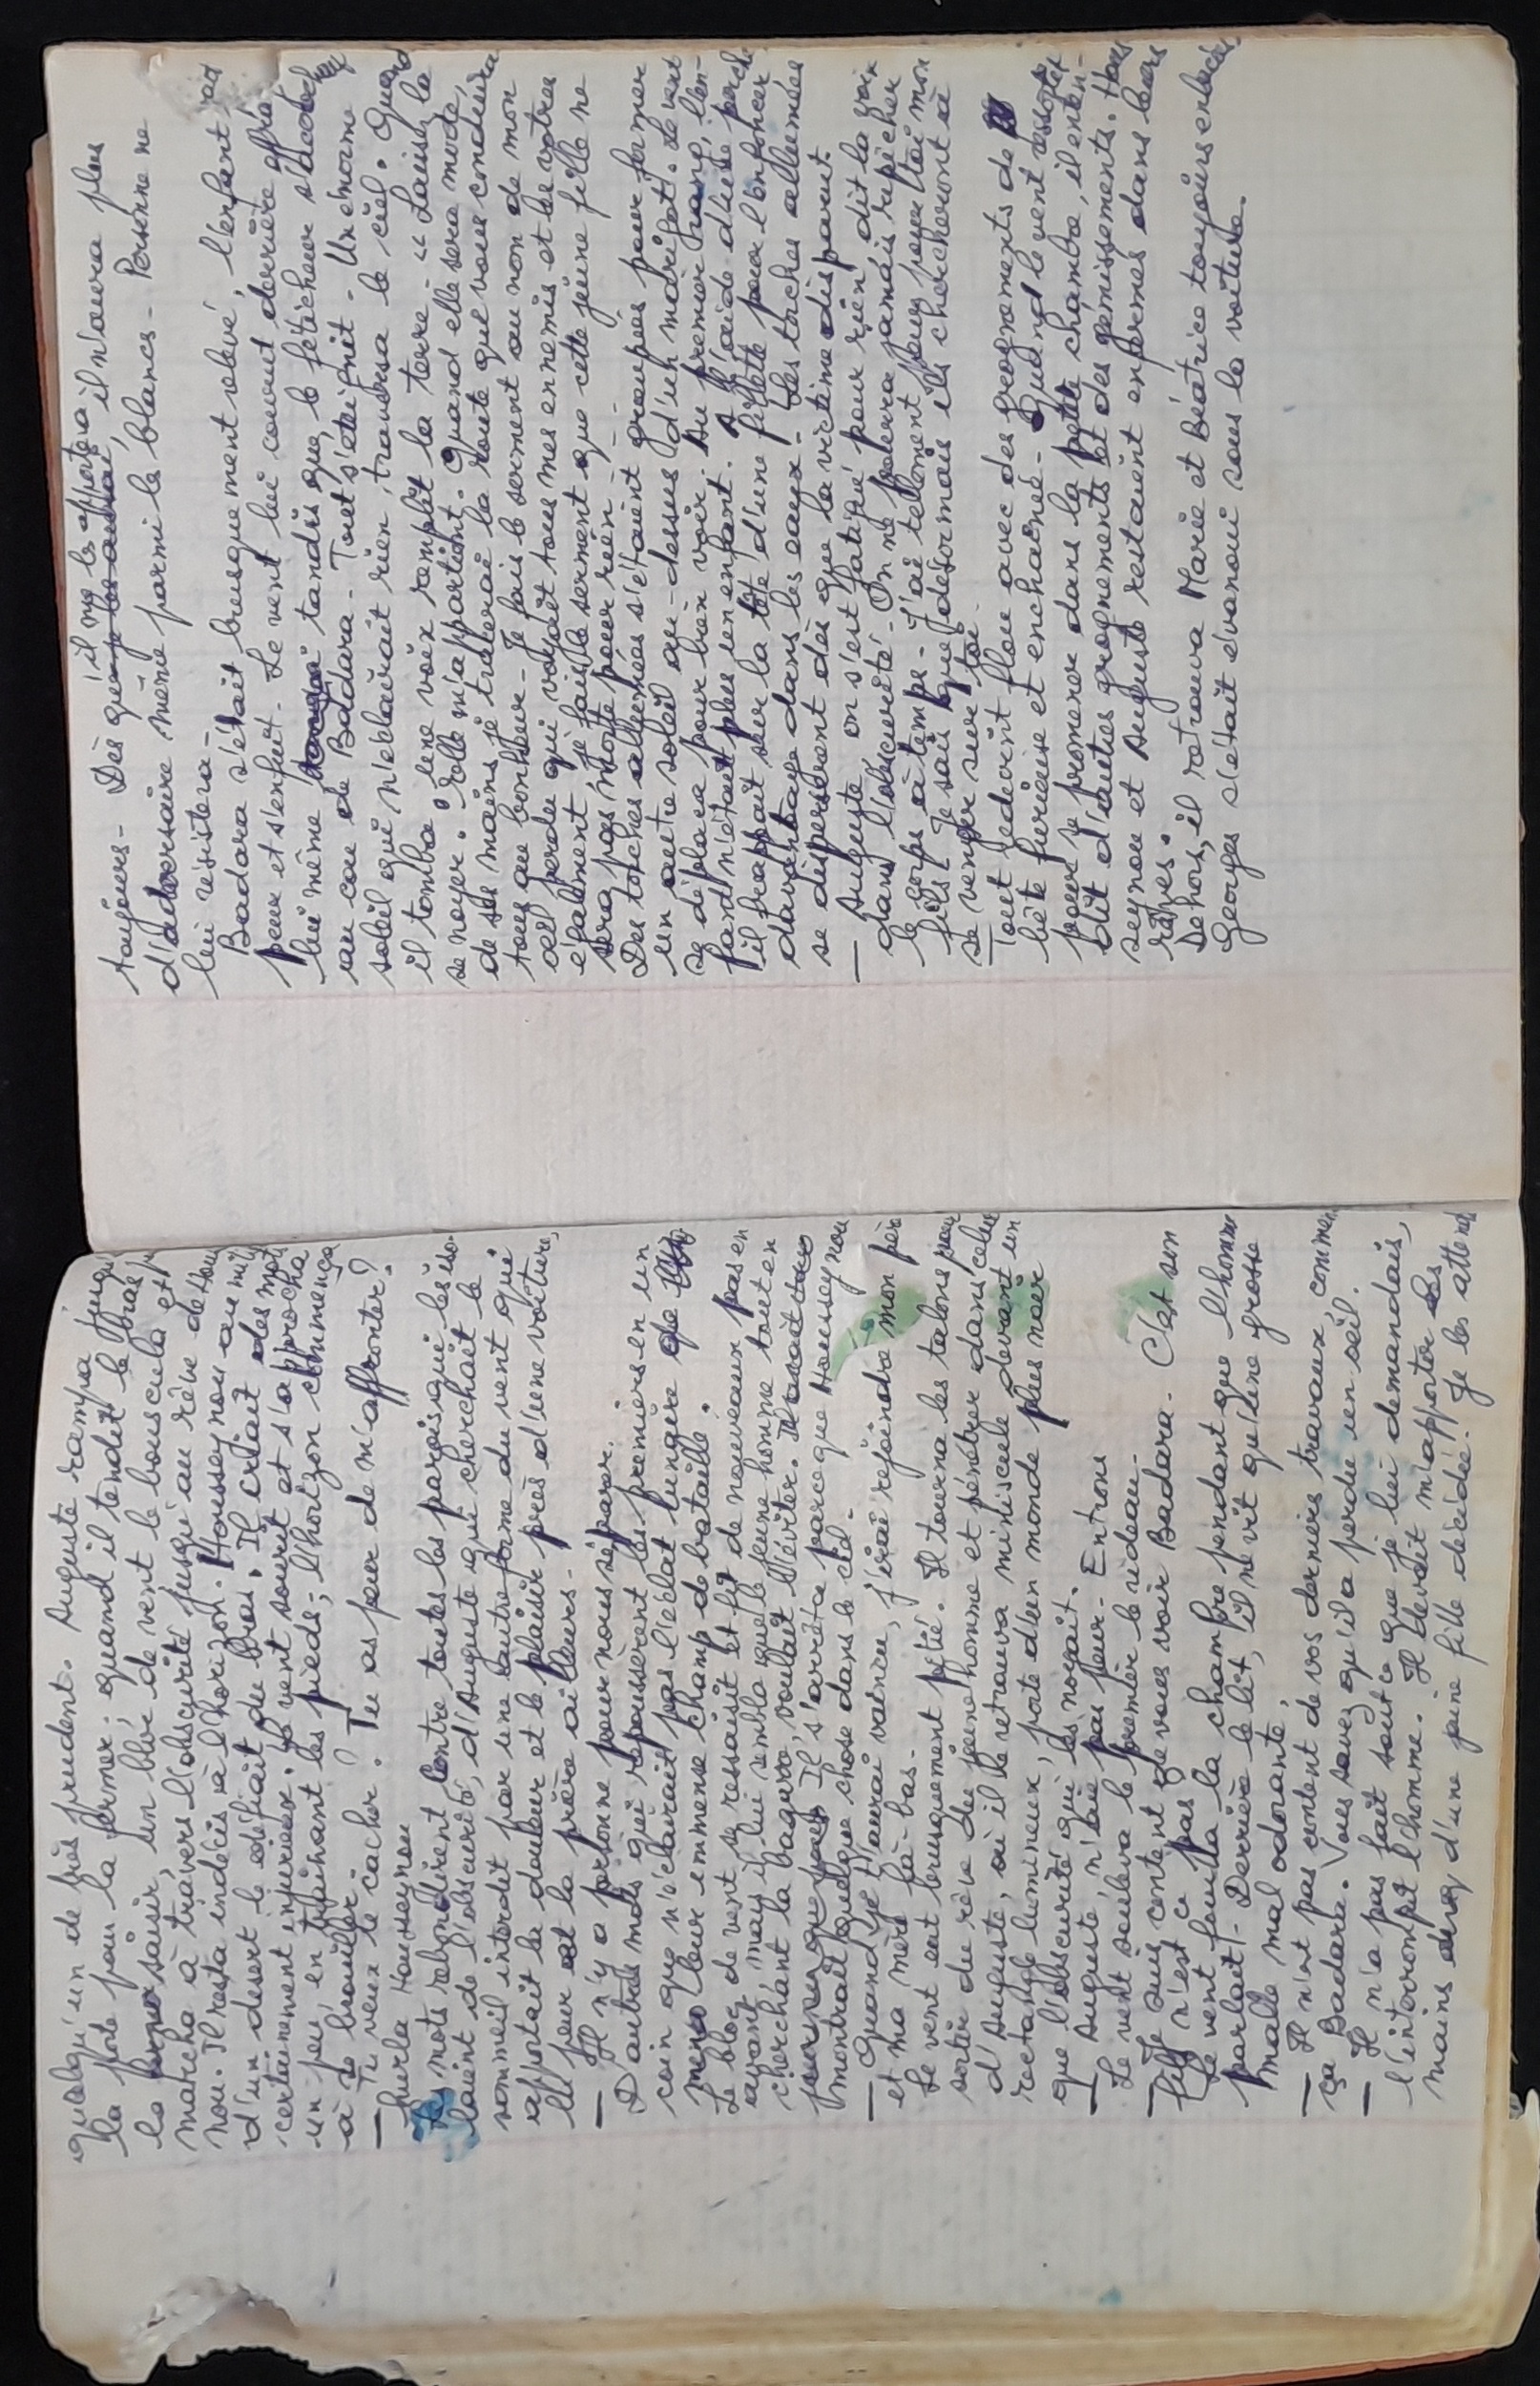 quelqu'un de très prudent. Auguste rampa jusqu'
la porte pour la fermer; quand il tendit le bras p
le saisir, un bloc de vent le bouscula et
marcha à travers l'obscurité jusqu'au rêve de Houssey
nou. Il resta indécis à l'horizon. Housseynou au mili
d'un désert le défiait du bras. Il criait des mots
certainement injurieux. Le vent sourit et s'approcha
un peu, en trainant les pieds; l'horizon commença
à se brouiller.
— Tu veux te cacher? Tu as peur de m'affronter?
hurla Housseynou
Les mots rebondirent contre toutes les parois qui les iso-
laient de l'obscurité, d'Auguste qui cherchait le
sommeil interdit par une autre forme du vent qui
apportait la douleur et le plaisir près d'une voiture,
la peur et la prière ailleurs.
— Il n'y a personne pour nous séparer.
D'autres mots qui repoussèrent les premiers en un
coin que n'éclairait pas l'éclat lunaire de
leur immense champ de bataille.
Le bloc de vent se ressaisit et fit de nouveaux pas en
avant mais il lui sembla que le jeune homme tout en
cherchant la bagarre, voulait l'éviter.
Il s'arrêta parce que Housseynou
montrait quelque chose dans le ciel.
— Quand je t'aurai vaincu, j'irai rejoindre mon père
et ma mère là-bas.
Le vent eut brusquement pitié. Il tourna les talons pour
sortir du rêve du jeune homme et pénétrer dans celui
d'Auguste, où il se retrouva minuscule devant un
rectangle lumineux, porte d'un monde plus noir
que l'obscurité qui les noyait.
— Auguste, n'aie pas peur. Entrons
Le vent souleva le premier le rideau.
— Je suis content de vous voir Badara. C'est son
fils n'est ce pas
Le vent fouilla la chambre pendant que l'homme
parlait. Derrière le lit, il ne vit qu'une grosse
malle mal odorante.
— Il n'est pas content de vos derniers travaux, comment
ça Badara. Vous savez qu'il a perdu un œil.
— Il n'a pas fait tout ce que je lui demandais,
l'interrompit l'homme. Il devait m'apporter les
mains d'une jeune fille décédée. Je les attends
toujours. Dès qu'il me les apportera il n'aura plus
d'adversaire même parmi les blancs. Personne ne
lui résistera.
Badara s'était brusquement levé, l'enfant eut
peur et s'enfuit. Le vent lui courut derrière effrayé
lui même tandis que le féticheur s'accrochait
au cou de Badara. Tout s'éteignit. Un énorme
soleil qui n'éclairait rien, traversa le ciel. Quand
il tomba, une voix remplit la terre. « Laissez la
se noyer. Elle m'appartient. Quand elle sera morte,
de ses mains je tracerai la route qui vous conduira
tous au bonheur. Je fais le serment au nom de mon
œil perdu qui voyait tous mes ennemis et les vôtres
également, je fais le serment que cette jeune fille ne
sera pas morte pour rien.
Des torches allumées s'étaient groupées pour former
un autre soleil au-dessus d'un marigot. Le vent
se déplaça pour bien voir. Au premier rang, l'en-
fant n'était plus un enfant. A l'aide d'une perche
il frappait sur la tête d'une fillette pour l'enfoncer
davantage dans les eaux. Les torches allumées
se dispersèrent dès que la victime disparut.
— Auguste on s'est fatigué pour rien, dit la voix
dans l'obscurité. On ne pourra jamais repêcher
le corps à temps. J'ai tellement peur pour toi mon
fils. Je sais que désormais ils chercheront à
se venger sur toi.
Tout redevint flou avec des grognements de
bête furieuse et enchaînée. Quand le vent ressortit
pour se promener dans la petite chambre, il enten-
dit d'autres grognements et des gémissements. Hous
seynou et Auguste restaient enfermés dans leurs
rêves.
Dehors, il retrouva Marie et Béatrice toujours enlacées
Georges s'était évanoui sous la voiture.